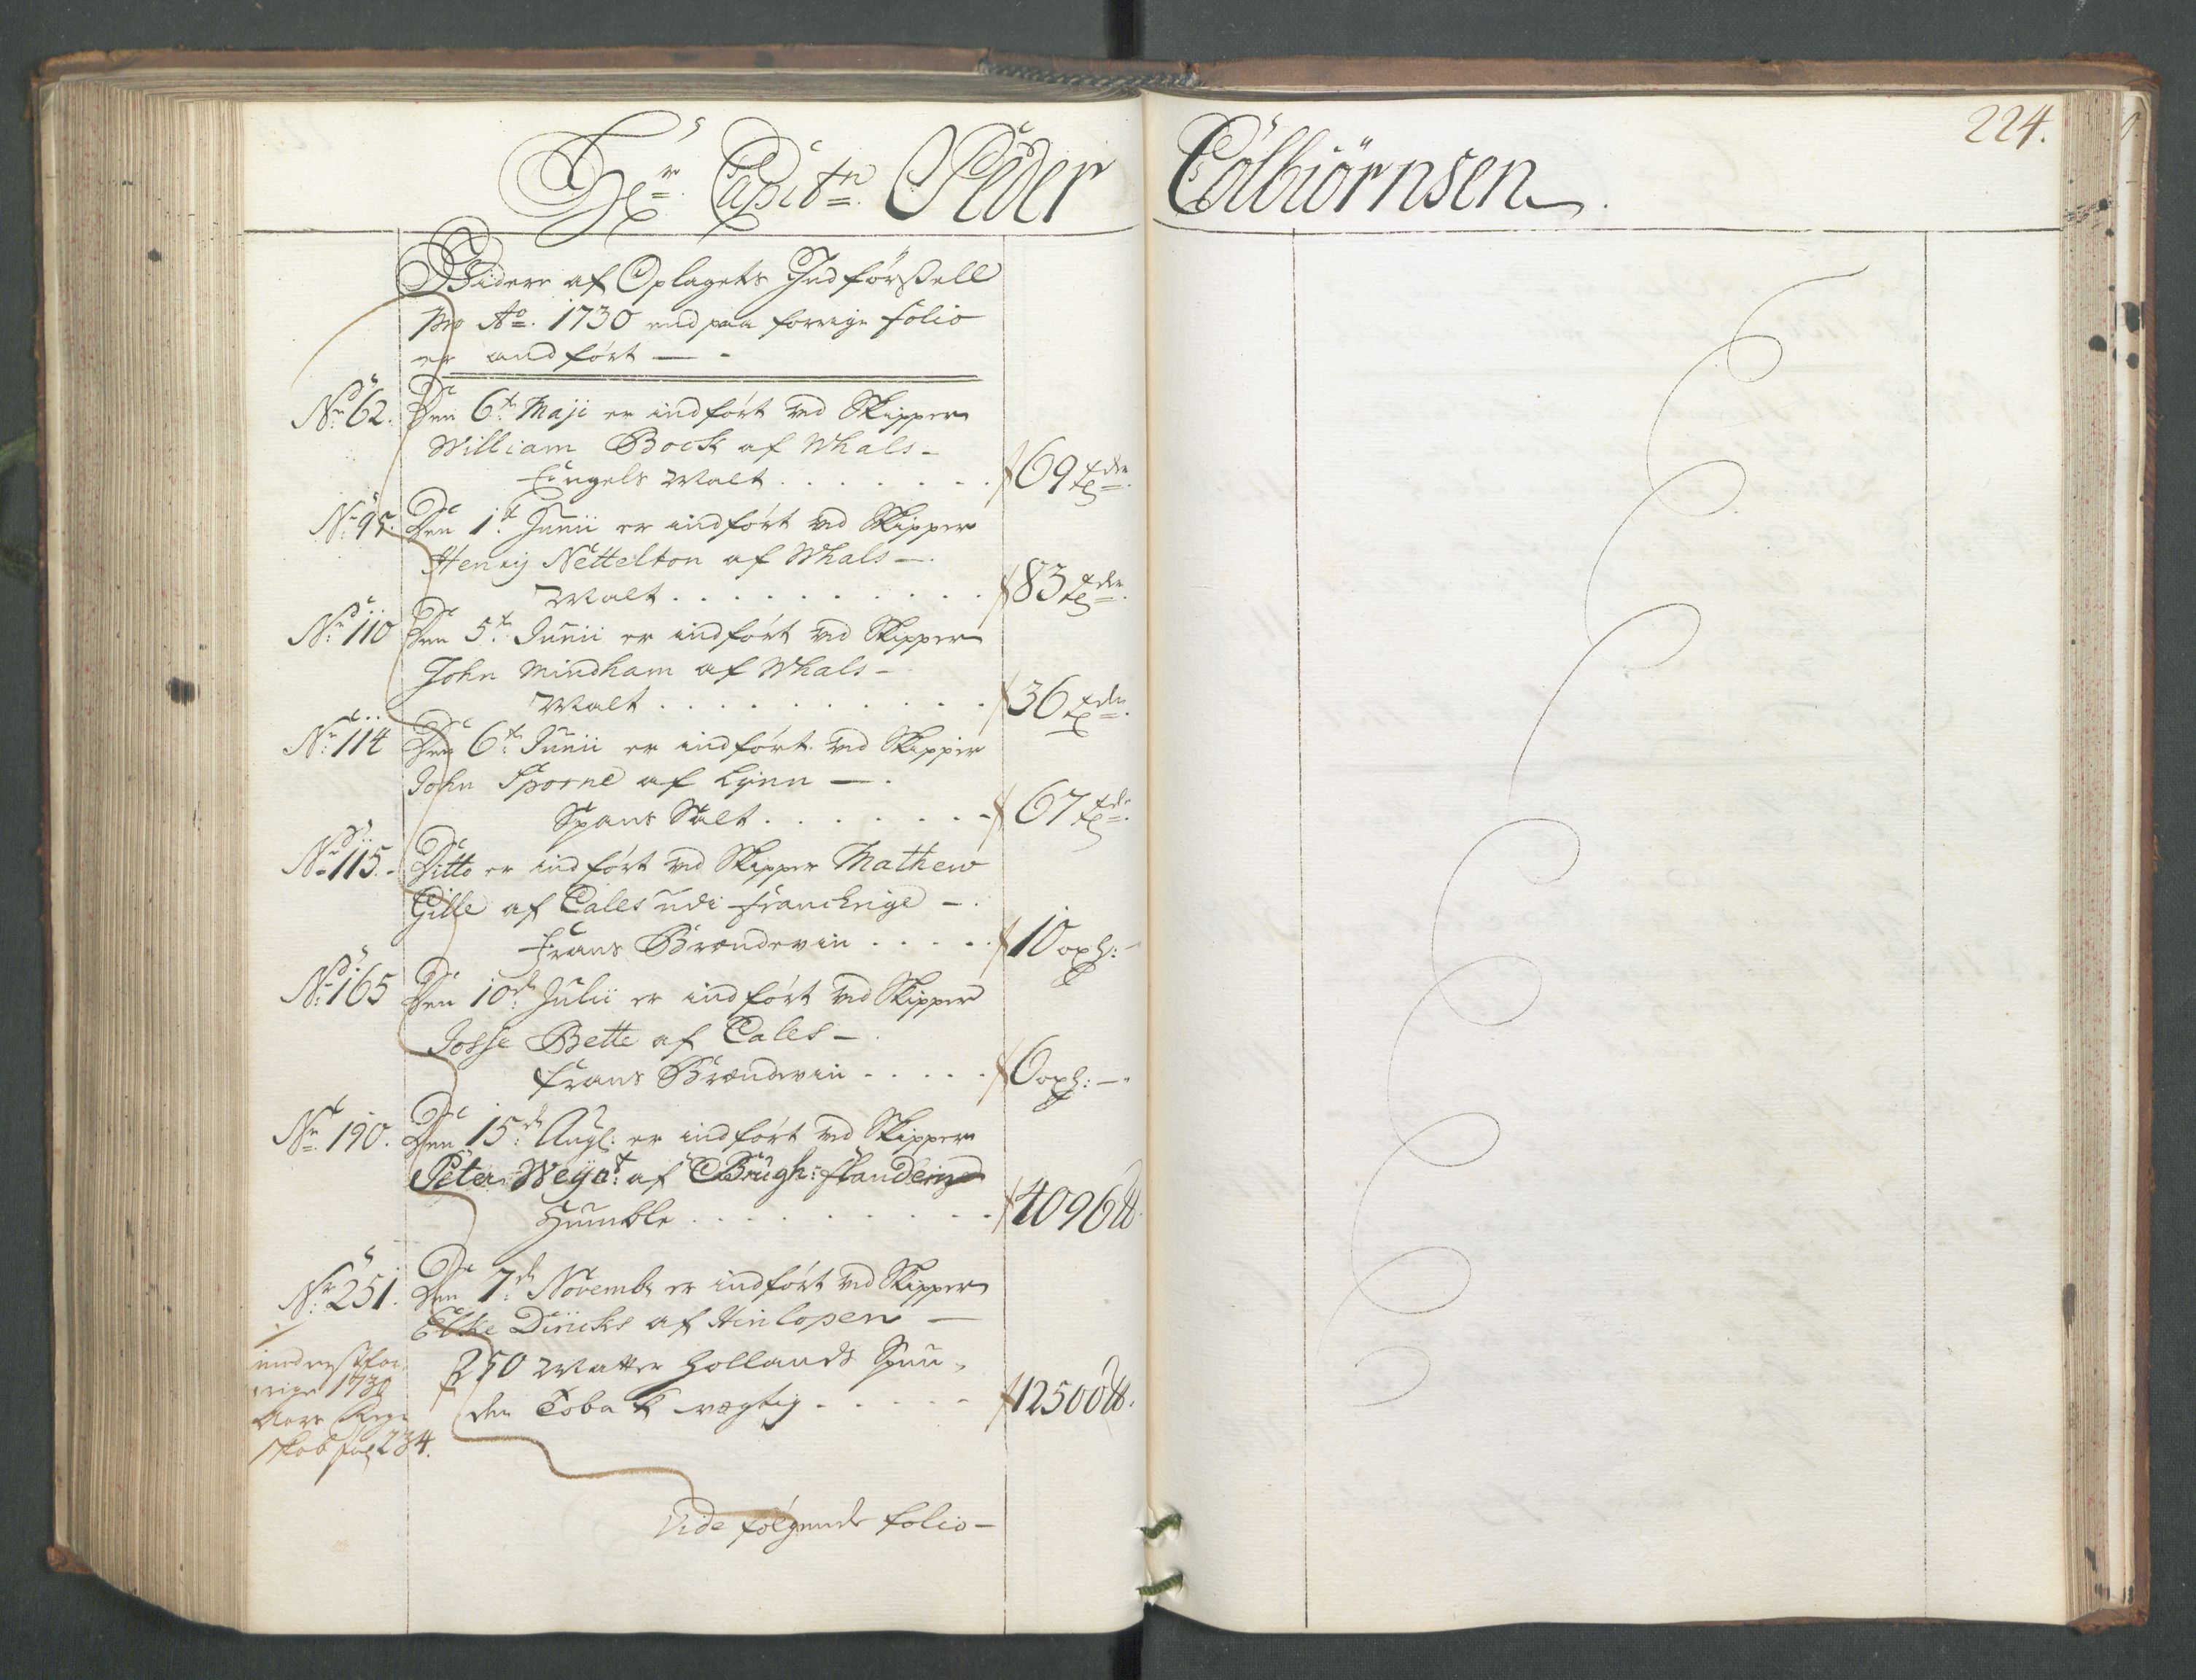 Hr. Capitn. Peder Colbiörnsen.
224.
Videre af Oplagets Indförsell
pro Ao. 1730 end paa forrige folio
er andfört —
No. 62. Den 6te Maji er indfört med Skipper
William Bock af Whals –
Engels Malt . . . . . . . 69 tdr.
No. 95. Den 1te Junii er indfört med Skipper
Henrij Nettelton af Whals —
Malt . . . . . . . . . . 83 tdr.
No. 110 Den 5te Junii er indfört med Skipper
John Mindham af Whals –
Malt . . . . . . . . . . 36 tdr.
No. 114 Den 6te Junii er indfört med Skipper
John Sporne af Lynn — .
Spans Salt . . . . . . . 67 tdr.
No. 115. Ditto er indfört med Skipper Mathew
Gille af Cales udi Franckrige – .
Frans Brændevin . . . . . 10 oxh: –
No. 165 Den 10de Julii er indfört med Skipper
Josse Bette af Cales – .
Frans Brændevin . . . . . 6 oxh: –
No. 190. Den 15de Aug: er indfört med Skipper
Peter Weÿnt: af Brügh: flandern
Humble . . . . . . . . . 4096 ℔.
No. 251. Den 7de Novembr er indfört med Skipper
Elke Diricks af Hinlopen —
250 Matter Hollands Spun-
den Toback vægtig . . . . . 12500 ℔.
1730
skab fol 234.
Vide fölgende folio –